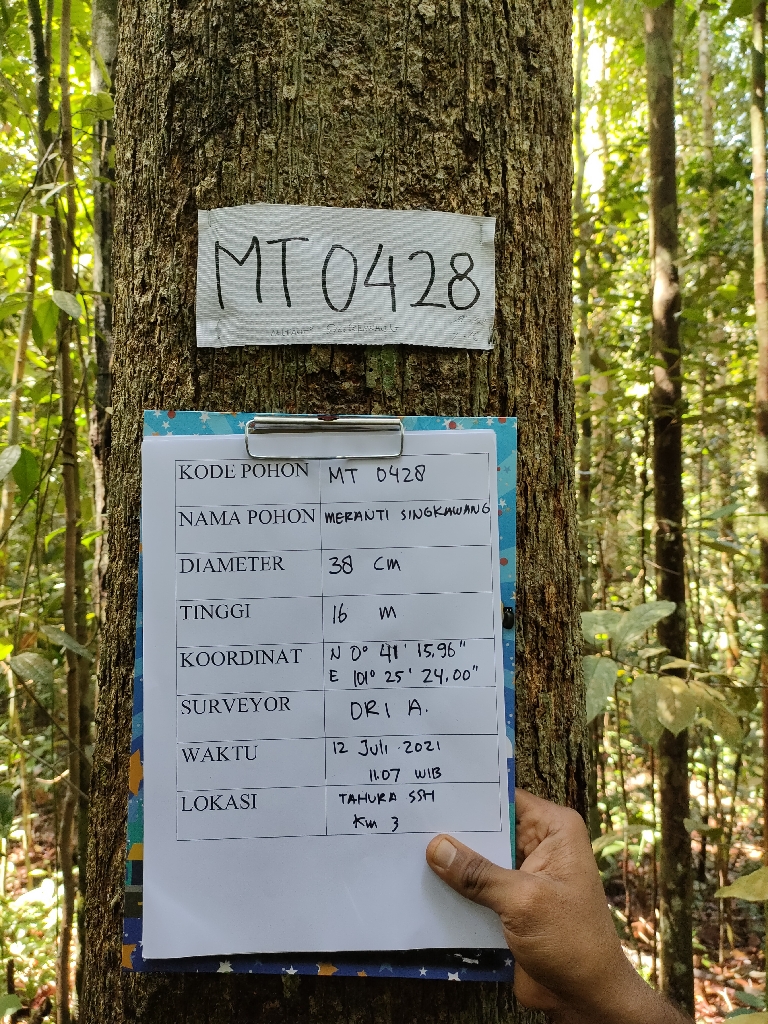 MT 0428
KODE POHON MT 0428
NAMA POHON MERANTI SINGKAWANG
DIAMETER 38 cm
TINGGI 16 m
KOORDINAT N 0° 41' 15,96"
E 101° 25' 24,00"
SURVEYOR ORI A.
WAKTU 12 Juli 2021
11.07 WIB
LOKASI TAHURA SSH
Km 3